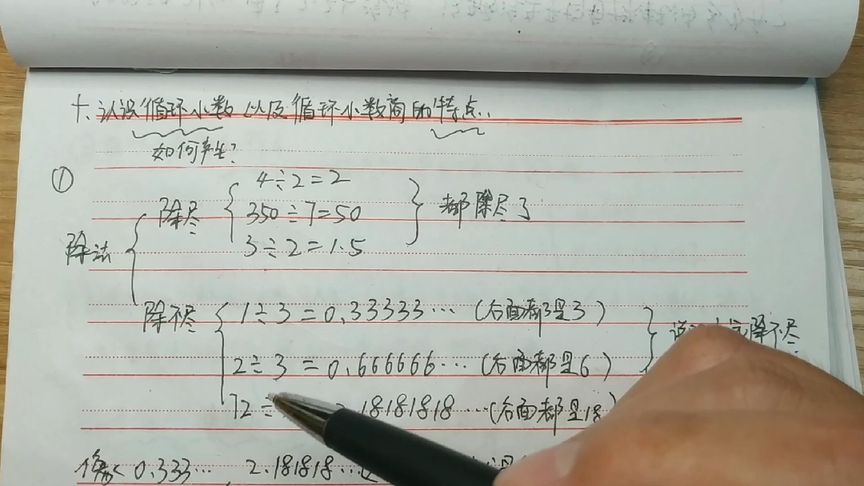 十、认识循环小数 以及循环小数商的特点.
如何产生?
① 4÷2=2
除尽 350÷7=50 都除尽了
除法 3÷2=1.5
除不尽 1÷3=0.33333… (后面都是3)
除不尽
2÷3=0.666666… (后面都是6)
72÷ .18181818…(后面都是18)
像 0.333…, 2.181818…